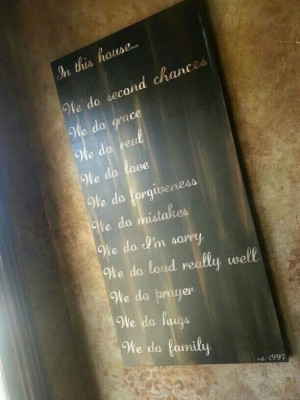 In this house...
We do second chances
We do grace
We do real
We do love
We do forgiveness
We do mistakes
We do I'm sorry.
We do loud really well
We do prayer
We do hugs
We do family
est. 1997